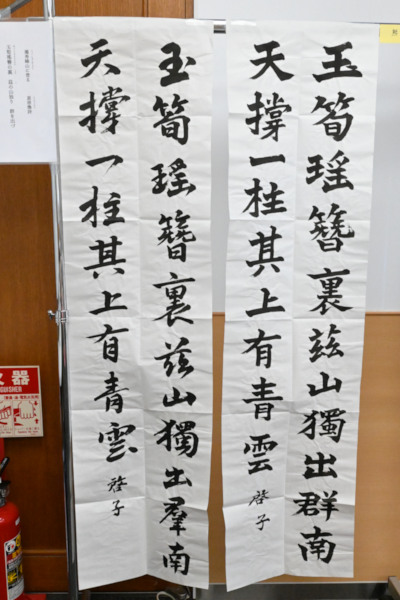 男
玉筍瑶簪裏茲山獨出群南
天撐一柱其上有青雲
啓子
玉筍瑶簪裏茲山獨出羣南
天撐一柱其上有青雲
啓子
火器